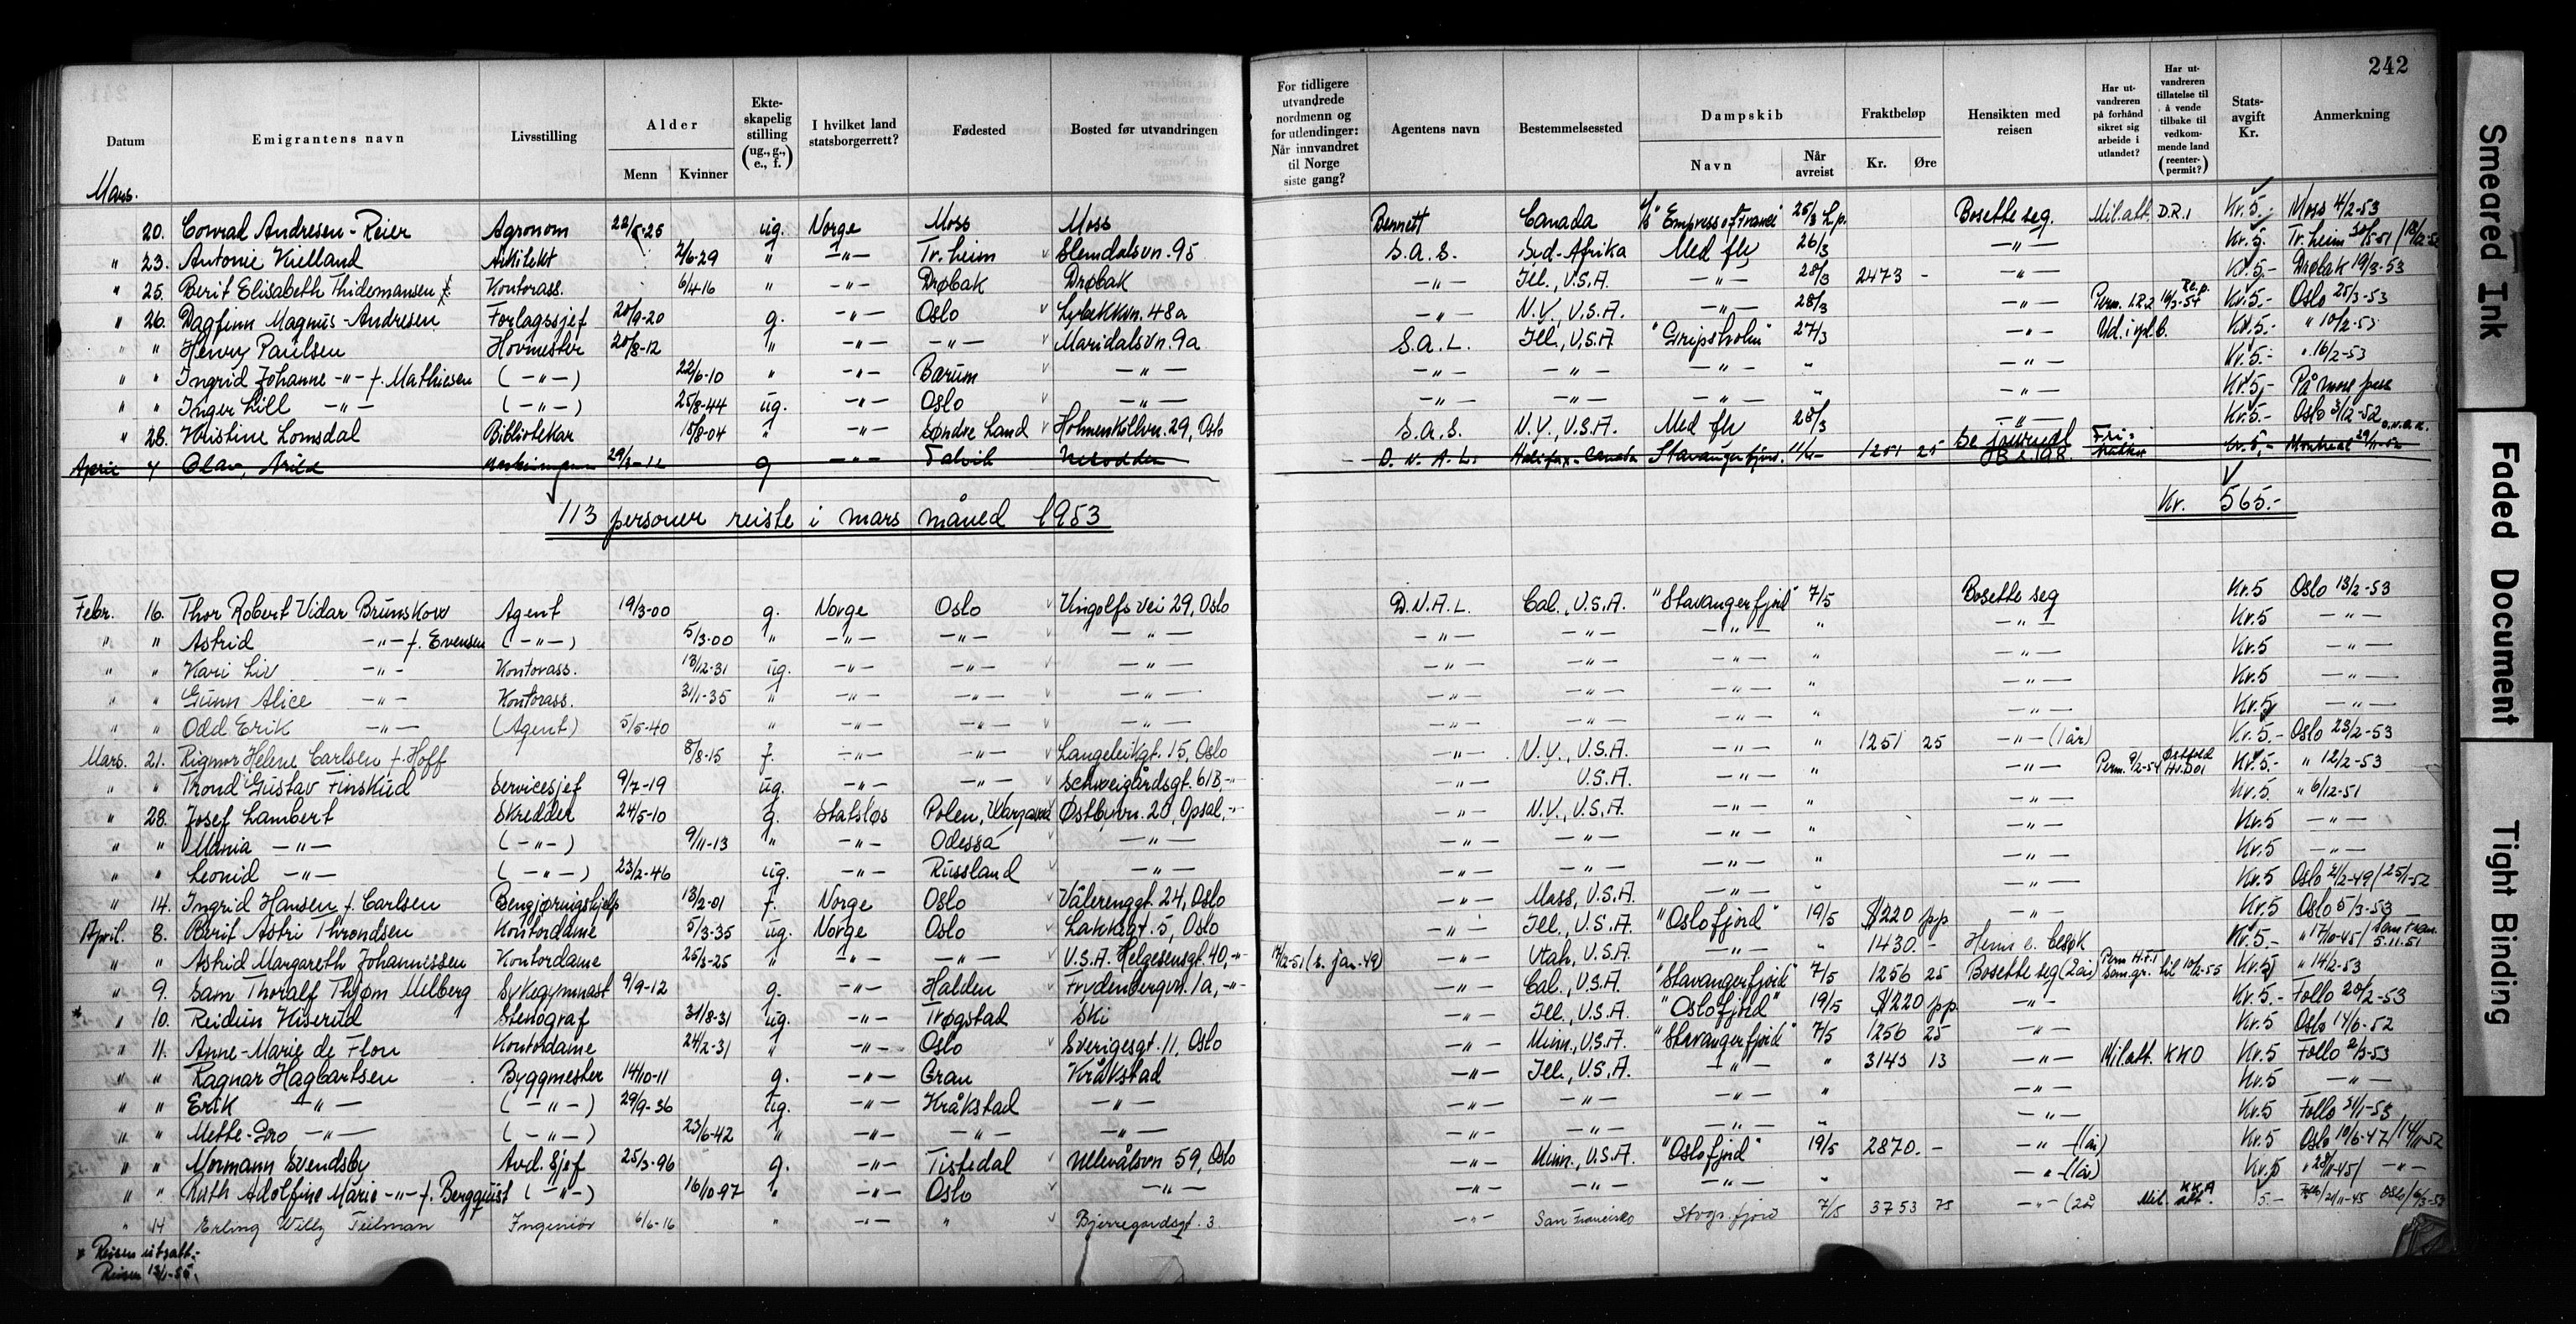 242
Datum | Emigrantens navn | Livsstilling | Alder Menn | Kvinner | Ekteskapelig stilling (ug., g., e., f.) | I hvilket land statsborgerrett? | Fødested | Bosted før utvandringen | For tidligere utvandrede nordmenn og for utlendinger: Når innvandret til Norge siste gang? | Agentens navn | Bestemmelsessted | Dampskib Navn | Når avreist | Fraktbeløp Kr. | Øre | Hensikten med reisen | Har utvandreren på forhånd sikret sig arbeide i utlandet? | Har utvandreren tillatelse til å vende tilbake til vedkommende land (reenterpermit?) | Statsavgift Kr. | Anmerkning
Mars.
20. Conrad Andresen-Reier Agronom 22/5-25 ug. Norge Moss Moss Bennett Canada "Empress of France" 25/3 L.p. Bosette seg. Mil.att. D.R.1 Kr. 5.- Moss 4/2-53
" 23. Antonie Kielland Arkitekt 2/6-29 " -"- Tr.heim Slemdalsvn. 95 S.A.S. Syd-Afrika Med fly 26/3 -"- Kr. 5.- Tr.heim
" 25. Berit Elisabeth Thidemansen Kontorass. 6/4-16 " -"- Drøbak Drøbak -"- Ill., U.S.A. -"- 28/3 2473 - -"- Kr. 5.- Drøbak 19/3-53
" 26. Dagfinn Magnus-Andresen Forlagssjef 20/9-20 g. -"- Oslo Lybekkvn. 48a -"- N.Y., U.S.A. -"- 28/3 -"- Perm. Kr. 5.- Oslo 25/3-53
" " Henry Paulsen Hovmester 20/8-12 " -"- -"- Maridalsvn. 9a S.A.L. Ill., U.S.A. "Gripsholm" 27/3 -"- Kr. 5.- " 10/2-53
" " Ingrid Johanne -"- f. Mathiesen (-"-) 22/6-10 " -"- Bærum -"- -"- -"- -"- " -"- Kr. 5.- " 16/2-53
" " Inger Lill -"- (-"-) 25/8-44 ug. -"- Oslo -"- -"- -"- -"- " -"- Kr. 5.- På mors pass
" 28. Kristine Lomsdal Bibliotekar 15/8-04 " -"- Søndre Land Holmenkollvn. 29, Oslo S.A.S. N.Y., U.S.A. Med fly 28/3 -"- Kr. 5.- Oslo 3/12-52
April 4 Olav, Arild 29/3-12 g -"- Talvik D.N.A.L. Halifax-Canada Stavangerfjord 1251 25 Kr. 5.- Montreal
113 personer reiste i mars måned 1953 Kr. 565.-
Febr. 16. Thor Robert Vidar Brunskow Agent 19/3-00 g. Norge Oslo Kingolfs vei 29, Oslo D.N.A.L. Cal., U.S.A. "Stavangerfjord" 7/5 Bosette seg Kr. 5 Oslo 13/2-53
" " Astrid -"- f. Evensen (-"-) 5/3-00 " -"- -"- -"- -"- -"- -"- " -"- Kr. 5 -"-
" " Kari Liv -"- Kontorass. 13/12-31 ug. -"- -"- -"- -"- -"- -"- " -"- Kr. 5 -"-
" " Gunn Alice -"- Kontorass. 31/1-35 " -"- -"- -"- -"- -"- -"- " -"- Kr. 5 -"-
" " Odd Erik -"- (Agent) 5/5-40 " -"- -"- -"- -"- -"- -"- " -"- Kr. 5 -"-
Mars. 21. Rigmor Helene Carlsen f. Hoff 8/8-15 f. -"- -"- Langeleikgt. 15, Oslo -"- N.Y., U.S.A. -"- " 1251 25 -"- (1 år) Kr. 5.- Oslo 23/2-53
" " Trond Gustav Finskud Servicesjef 9/7-19 ug. -"- -"- Schweigårdsgt. 61B, -"- -"- U.S.A. -"- " -"- Perm. 9/2-54 Kr. 5.- " 12/2-53
" 28. Josef Lambert Skredder 24/5-10 g. Statsløs Polen, Østbyvn. 20, Opsal, -"- -"- N.Y., U.S.A. -"- " -"- Kr. 5. " 6/12-51
" " Mania -"- (-"-) 9/11-13 " -"- Odessa -"- -"- -"- -"- " -"- Kr. 5 -"-
" " Leonid -"- (-"-) 23/2-46 ug. -"- Russland -"- -"- -"- -"- " -"- Kr. 5 -"-
" 14. Ingrid Hansen f. Carlsen Rengjøringshjelp 13/2-01 f. Norge Oslo Vålerenggt. 24, Oslo -"- Mass, U.S.A. -"- " -"- Kr. 5 Oslo 2/2-49 / 25/1-52
April. 8. Berit Astri Throndsen Kontordame 5/3-35 ug. Norge Oslo Lakkegt. 5, Oslo -"- Ill., U.S.A. "Oslofjord" 19/5 $220 pp -"- Kr. 5 Oslo 5/3-53
" " Astrid Margareth Johannessen Kontordame 25/3-25 " -"- -"- U.S.A. Helgesensgt. 40, -"- -"- Utah, U.S.A. -"- " 1430.- Hjem e. besøk Kr. 5.- " 17/10-45 / 5.11.51
" 9. Sam Thoralf Thjøm Melberg Sykegymnast 9/9-12 g. -"- Halden Frydenbergvn. 1a, -"- -"- Cal., U.S.A. "Stavangerfjord" 7/5 1256 25 Bosette seg (2 år) til 10/2-55 Kr. 5 " 14/2-53
* " 10. Reidun Kiserud Stenograf 31/8-31 ug. -"- Trøgstad Ski -"- Ill., U.S.A. "Oslofjord" 19/5 $220 pp. -"- Kr. 5.- Follo 20/2-53
" 11. Anne-Marie de Flon Kontordame 24/2-31 " -"- Oslo Sverigesgt. 11, Oslo -"- Minn., U.S.A. "Stavangerfjord" 7/5 1256 25 -"- Kr. 5 Oslo 14/6-52
" " Ragnar Hagbartsen Byggmester 14/10-11 g. -"- Gran Kråkstad -"- Ill., U.S.A. -"- " 3143 13 -"- Mil.att. KKO Kr. 5 Follo 2/3-53
" " Erik -"- (-"-) 29/9-36 ug. -"- Kråkstad -"- -"- -"- -"- " -"- Kr. 5 -"-
" " Mette-Gro -"- (-"-) 23/6-42 " -"- -"- -"- -"- -"- -"- " -"- Kr. 5 Follo 31/1-53
" " Normann Svendsby Avd. Sjef 25/3-96 g. -"- Tistedal Ullevålsvn 59, Oslo -"- Minn., U.S.A. "Oslofjord" 19/5 2870.- -"- (1 år) Kr. 5 Oslo 10/6-47 / 14/11-52
" " Ruth Adolfine Marie -"- f. Bergquist (-"-) 16/10-97 " -"- Oslo -"- -"- -"- -"- " -"- (1 år) Kr. 5 " 28/11-45 / -"-
" 14 Erling Willy Teilman Ingeniør 6/6-16 " -"- " Bjerregaardsgt. 3 -"- San Francisco Stvgr. fjord 7/5 3753 75 -"- (2 år Mil. att. KKA 5.- Oslo 6/3-53
* Reisen utsatt.-
Reiser 13/1-55.
Smeared Ink
Faded Document
Tight Binding